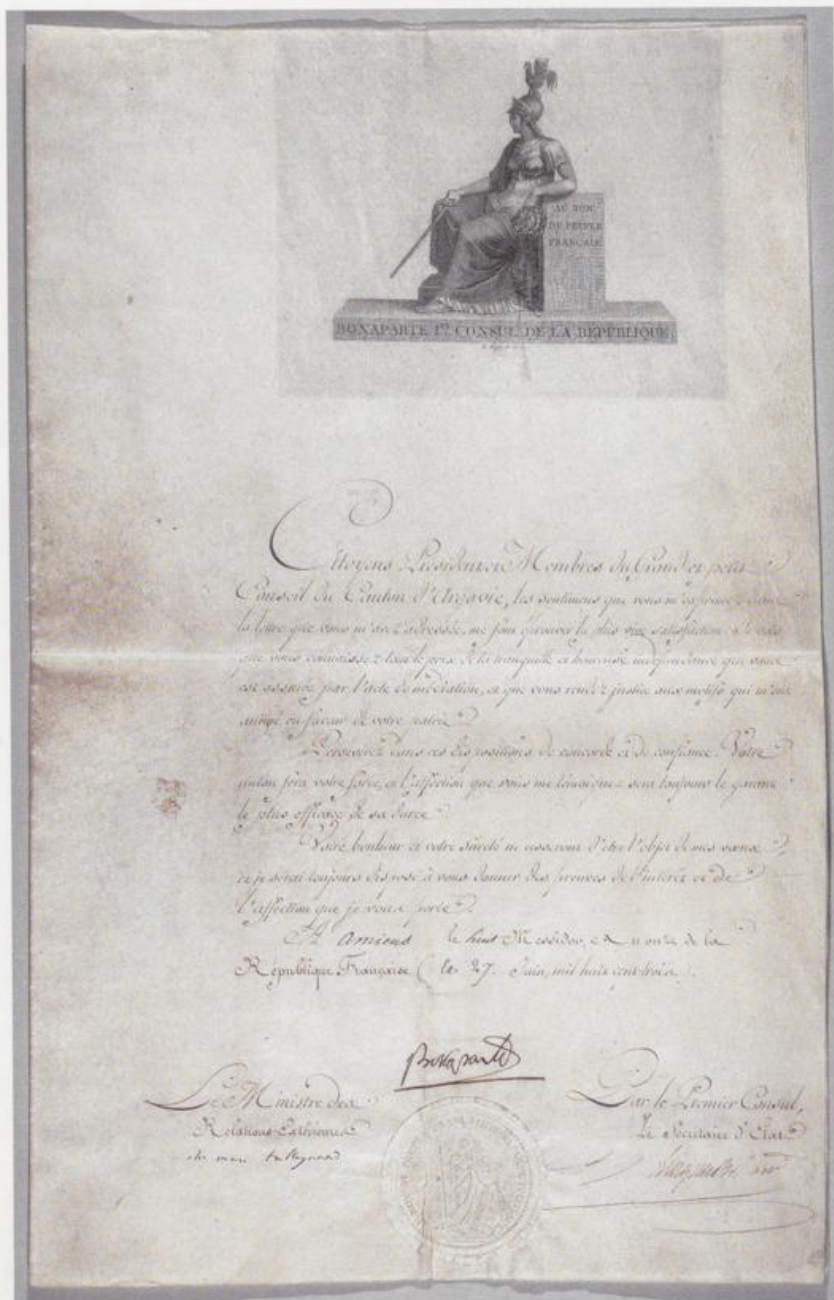 AU NOM
DU PEUPLE
FRANÇAIS
BONAPARTE 1er CONSUL DE LA REPUBLIQUE
Citoyens Président et Membres du Grand et petit
Conseil du Canton d'Argovie, les sentimens que vous m'exprimez dans
la lettre que vous m'avez adressée, me font éprouver la plus vive satisfaction. Je vois
que vous connaissez tout le prix de la tranquille et heureuse indépendance que vous
est assurée par l'acte de médiation, et que vous rendez justice aux motifs qui m'ont
animé en faveur de votre patrie.
Persévérez dans ces dispositions de concorde et de confiance. Votre
union fera votre force, et l'affection que vous me témoignez sera toujours le garant
le plus efficace de sa durée.
Votre bonheur et votre sûreté ne cesseront d'être l'objet de mes vœux
et je serai toujours disposé à vous donner des preuves de l'intérêt et de
l'affection que je vous porte.
A Amiens le huit Messidor, an onze de la
République Française (le 27. Juin, mil huit cent trois.
Bonaparte
Le Ministre des
Relations Extérieures
ch. mau. talleyrand
Par le Premier Consul,
Le Secrétaire d'Etat